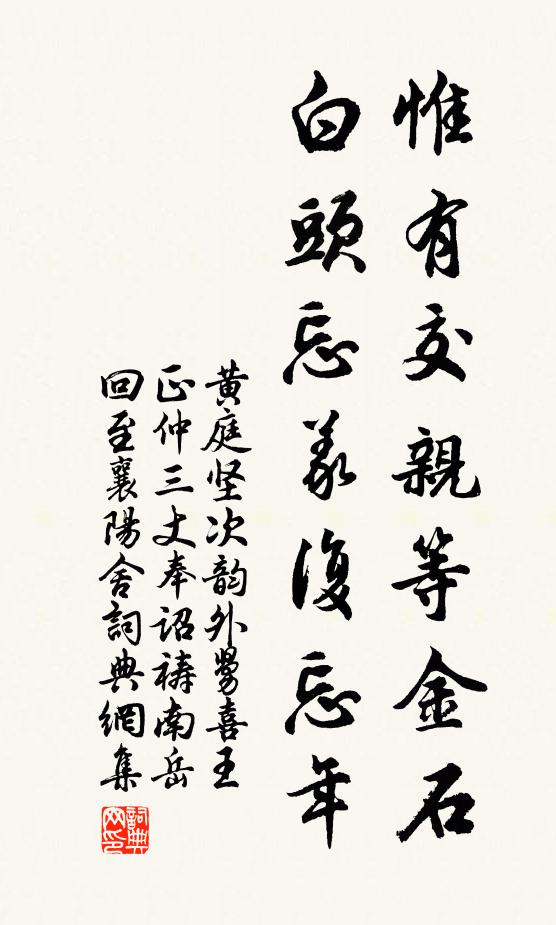 惟有交親等金石
白頭忘義復忘年
黄庭坚次韵外舅喜王
正仲三丈奉詔禱南岳
回至襄陽舍詞典網集
詞典
网印